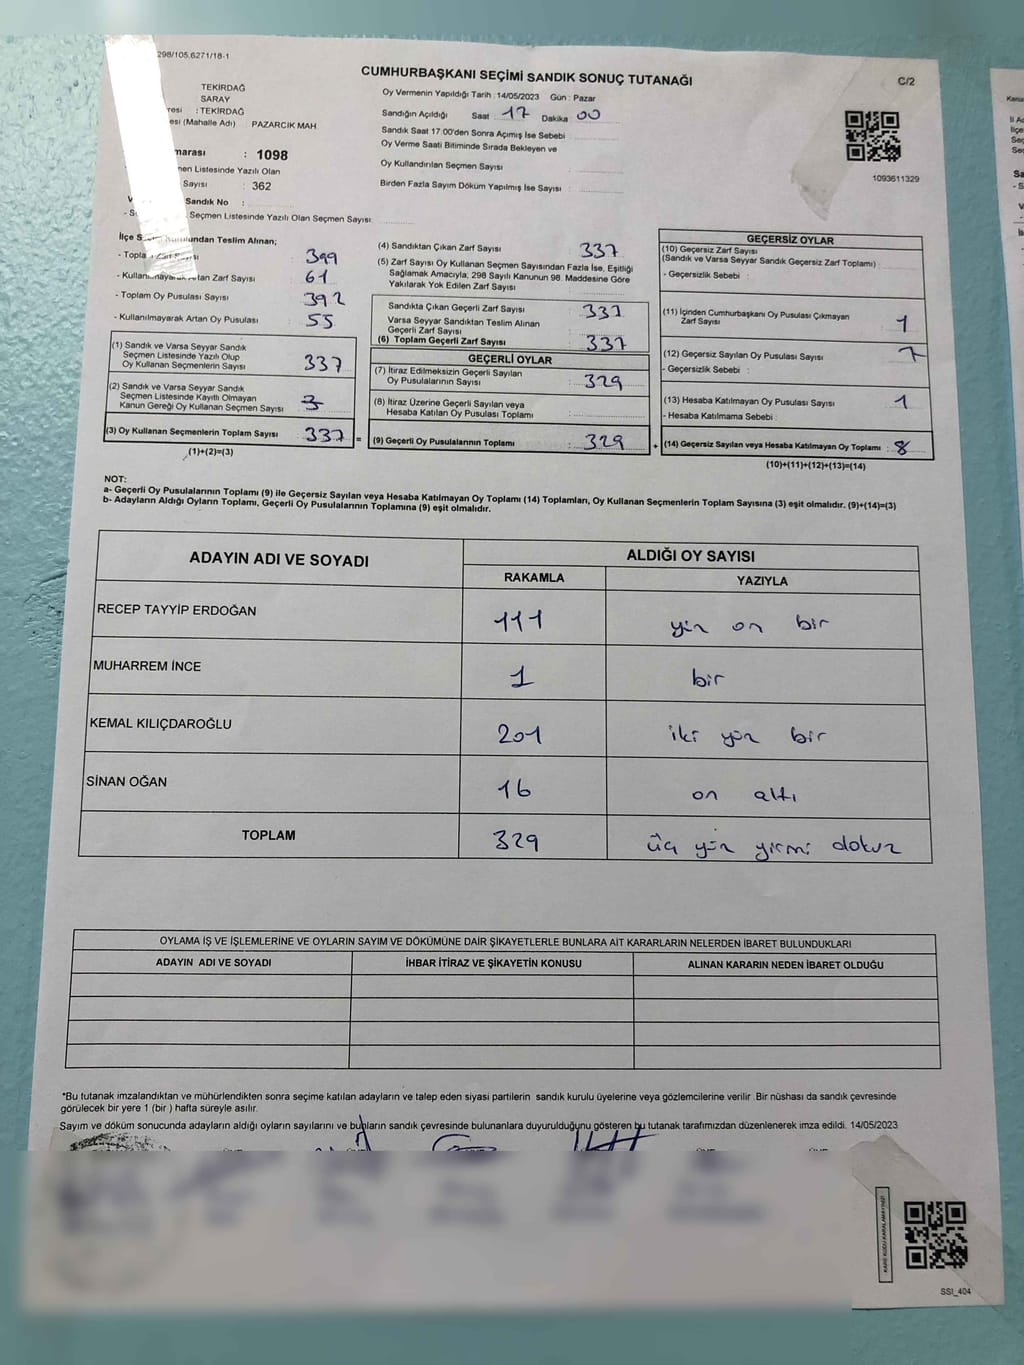 298/105.6271/18-1
CUMHURBAŞKANI SEÇİMİ SANDIK SONUÇ TUTANAĞI
C/2
TEKİRDAĞ
SARAY
: TEKİRDAĞ
esi (Mahalle Adı) PAZARCIK MAH
marası : 1098
men Listesinde Yazılı Olan
Sayısı : 362
Sandık No :
Seçmen Listesinde Yazılı Olan Seçmen Sayısı:
Oy Vermenin Yapıldığı Tarih : 14/05/2023 Gün : Pazar
Sandığın Açıldığı Saat 17 Dakika 00
Sandık Saat 17:00'den Sonra Açımış İse Sebebi
Oy Verme Saati Bitiminde Sırada Bekleyen ve
Oy Kullandırılan Seçmen Sayısı
Birden Fazla Sayım Döküm Yapılmış İse Sayısı :
1093611329
İlçe Seçim Kurulundan Teslim Alınan;
- Toplam Zarf Sayısı 399
- Kullanılmayarak Artan Zarf Sayısı 61
- Toplam Oy Pusulası Sayısı : 392
- Kullanılmayarak Artan Oy Pusulası : 55
(1) Sandık ve Varsa Seyyar Sandık
Seçmen Listesinde Yazılı Olup
Oy Kullanan Seçmenlerin Sayısı 337
(2) Sandık ve Varsa Seyyar Sandık
Seçmen Listesinde Kayıtlı Olmayan
Kanun Gereği Oy Kullanan Seçmen Sayısı
(3) Oy Kullanan Seçmenlerin Toplam Sayısı : 337 =
(1)+(2)=(3)
(4) Sandıktan Çıkan Zarf Sayısı 337
(5) Zarf Sayısı Oy Kullanan Seçmen Sayısından Fazla İse, Eşitliği
Sağlamak Amacıyla; 298 Sayılı Kanunun 98. Maddesine Göre
Yakılarak Yok Edilen Zarf Sayısı
Sandıkta Çıkan Geçerli Zarf Sayısı : 337
Varsa Seyyar Sandıktan Teslim Alınan
Geçerli Zarf Sayısı
(6) Toplam Geçerli Zarf Sayısı : 337
GEÇERLİ OYLAR
(7) İtiraz Edilmeksizin Geçerli Sayılan
Oy Pusulalarının Sayısı : 329
(8) İtiraz Üzerine Geçerli Sayılan veya
Hesaba Katılan Oy Pusulası Toplamı
(9) Geçerli Oy Pusulalarının Toplamı : 329 +
GEÇERSİZ OYLAR
(10) Geçersiz Zarf Sayısı
(Sandık ve Varsa Seyyar Sandık Geçersiz Zarf Toplamı)
- Geçersizlik Sebebi :
(11) İçinden Cumhurbaşkanı Oy Pusulası Çıkmayan
Zarf Sayısı 1
(12) Geçersiz Sayılan Oy Pusulası Sayısı : 7
- Geçersizlik Sebebi :
(13) Hesaba Katılmayan Oy Pusulası Sayısı : 1
- Hesaba Katılmama Sebebi :
(14) Geçersiz Sayılan veya Hesaba Katılmayan Oy Toplamı : 8
(10)+(11)+(12)+(13)=(14)
NOT:
a- Geçerli Oy Pusulalarının Toplamı (9) ile Geçersiz Sayılan veya Hesaba Katılmayan Oy Toplamı (14) Toplamları, Oy Kullanan Seçmenlerin Toplam Sayısına (3) eşit olmalıdır. (9)+(14)=(3)
b- Adayların Aldığı Oyların Toplamı, Geçerli Oy Pusulalarının Toplamına (9) eşit olmalıdır.
ADAYIN ADI VE SOYADI ALDIĞI OY SAYISI
RAKAMLA YAZIYLA
RECEP TAYYİP ERDOĞAN 111 yüz on bir
MUHARREM İNCE 1 bir
KEMAL KILIÇDAROĞLU 201 iki yüz bir
SİNAN OĞAN 16 on altı
TOPLAM 329 üç yüz yirmi dokuz
OYLAMA İŞ VE İŞLEMLERİNE VE OYLARIN SAYIM VE DÖKÜMÜNE DAİR ŞİKAYETLERLE BUNLARA AİT KARARLARIN NELERDEN İBARET BULUNDUKLARI
ADAYIN ADI VE SOYADI İHBAR İTİRAZ VE ŞİKAYETİN KONUSU ALINAN KARARIN NEDEN İBARET OLDUĞU
*Bu tutanak imzalandıktan ve mühürlendikten sonra seçime katılan adayların ve talep eden siyasi partilerin sandık kurulu üyelerine veya gözlemcilerine verilir .Bir nüshası da sandık çevresinde
görülecek bir yere 1 (bir ) hafta süreyle asılır.
Sayım ve döküm sonucunda adayların aldığı oyların sayılarını ve bunların sandık çevresinde bulunanlara duyurulduğunu gösteren bu tutanak tarafımızdan düzenlenerek imza edildi. 14/05/2023
SSI_404